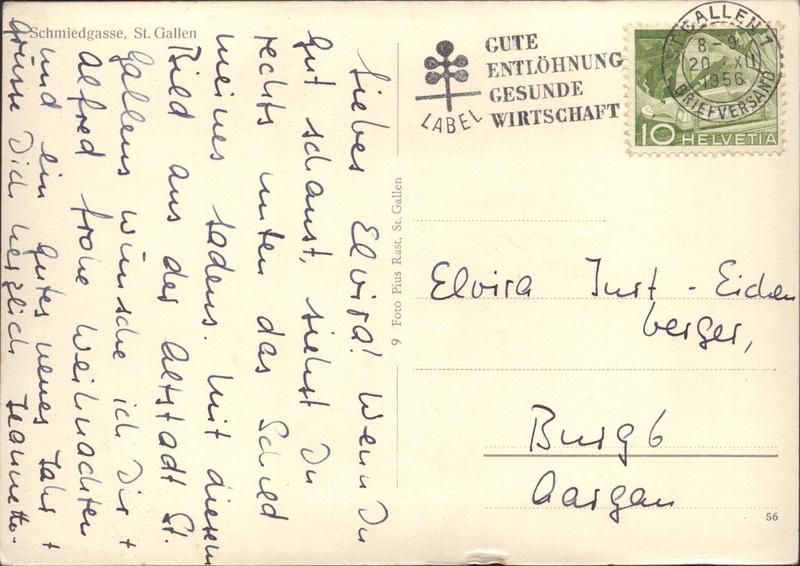 Schmiedgasse, St. Gallen
Liebes Elvira! Wenn Du
gut schaust, siehst Du
rechts unten das Schild
meines Ladens. Mit diesem
Bild aus der Altstadt St.
Gallens wünsche ich Dir +
Alfred frohe Weihnachten
und ein gutes neues Jahr +
grüsse Dich herzlich Jeannette.
9 Foto Pius Rast, St. Gallen
LABEL
GUTE
ENTLÖHNUNG
GESUNDE
WIRTSCHAFT
ST. GALLEN 1
8-9
20. XII
1956
BRIEFVERSAND
10 HELVETIA
Elvira Just - Eichen
berger,
Burg 6
Aargau
56